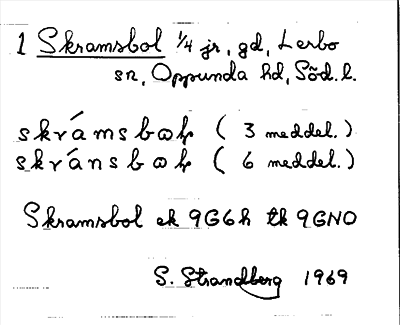 1 Skramsbol 1/4 jr, gd, Lerbo
sn, Oppunda hd, Söd. l.
skrámsbꞷꝉ ( 3 meddel. )
skránsbꞷꝉ ( 6 meddel. )
Skramsbol ek 9G6h tk 9GNO
S. Strandberg 1969